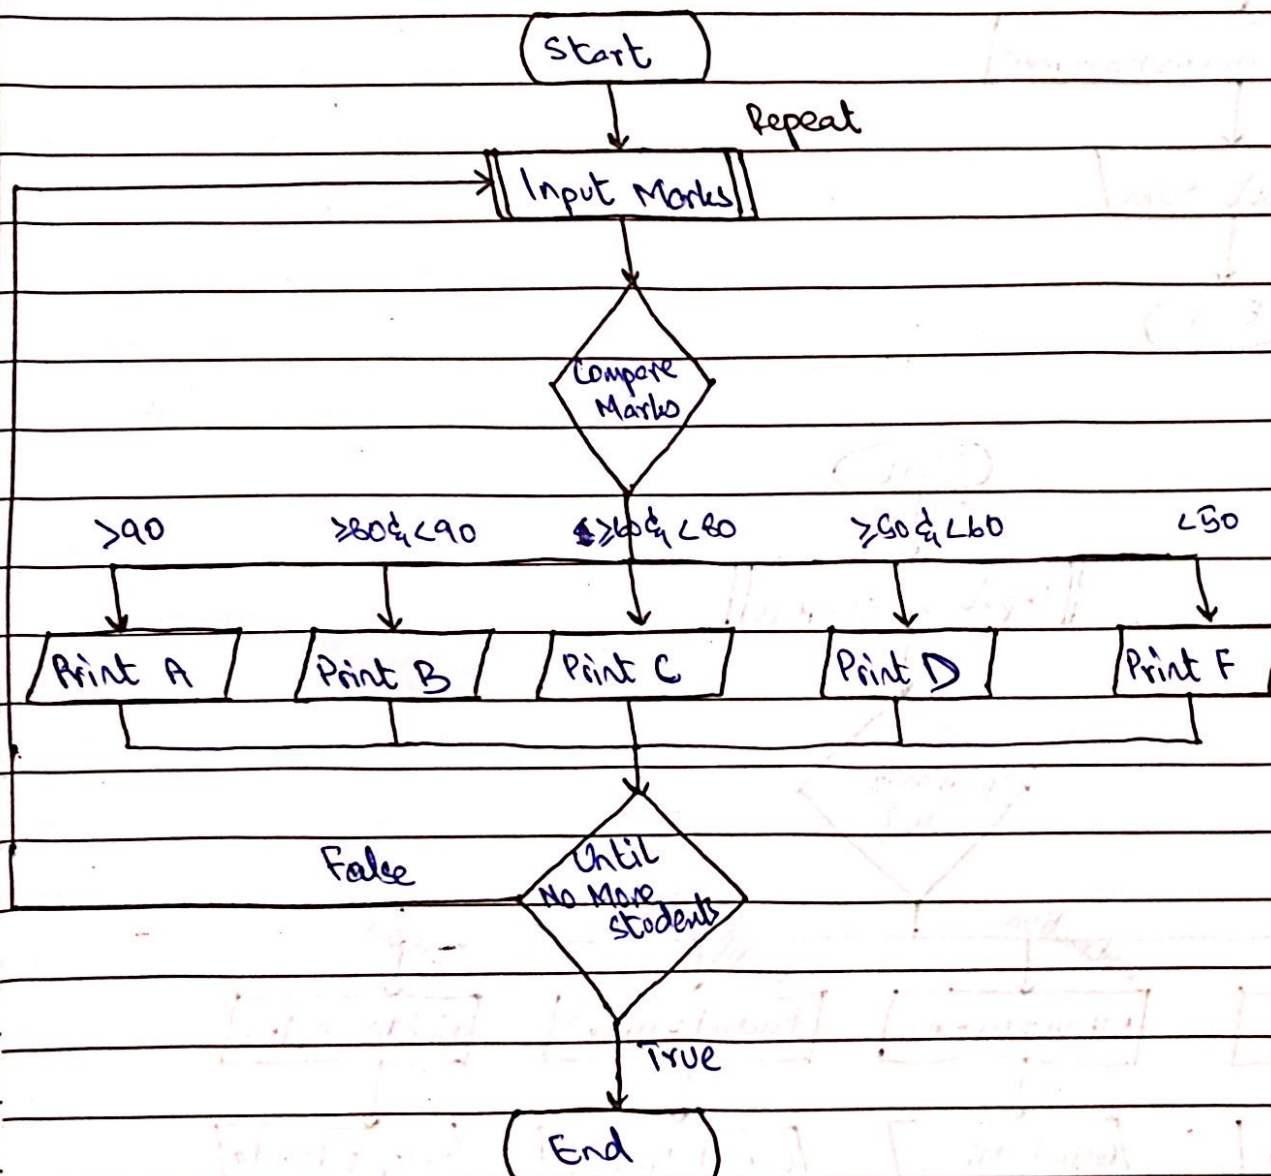 Start
Repeat
Input Marks
Compare
Marks
>90
≥80 & <90
≥60 & <80
≥50 & <60
<50
Print A
Print B
Print C
Print D
Print F
False
Until
No More
students
True
End